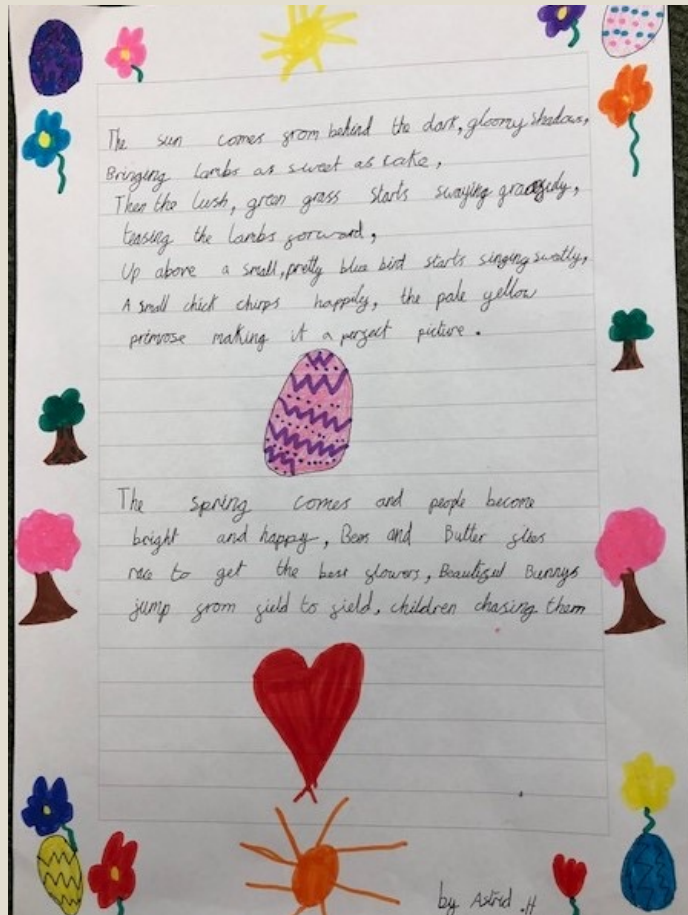 The sun comes from behind the dark, gloomy shadows,
Bringing lambs as sweet as cake,
Then the lush, green grass starts swaying gracefully,
teasing the lambs forward,
Up above a small, pretty blue bird starts singing sweetly,
A small chick chirps happily, the pale yellow
primrose making it a perfect picture.
The spring comes and people become
bright and happy, Bees and Butter flies
race to get the best flowers, Beautiful Bunnys
jump from field to field, children chasing them
by Astrid .H